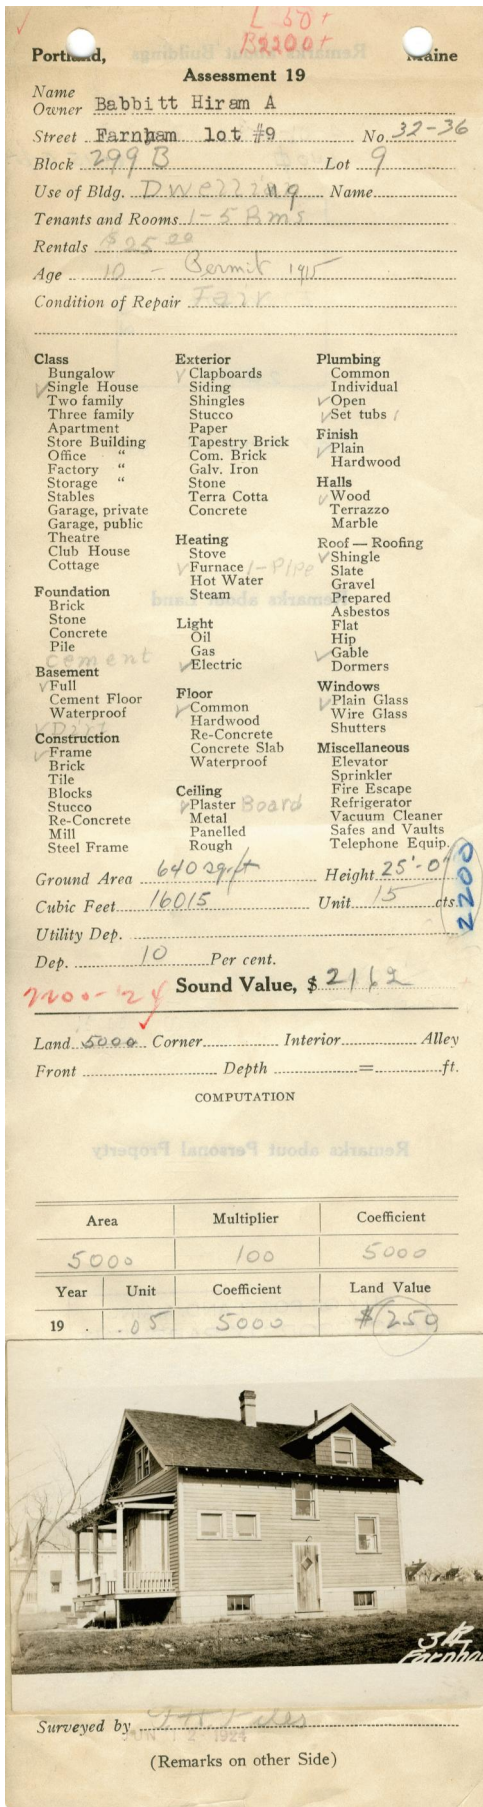 L 50+
B2200+
Portland, Maine
Assessment 19
Name
Owner Babbitt Hiram A
Street Farnham lot #9 No. 32-36
Block 299 B Lot 9
Use of Bldg. Dwelling Name
Tenants and Rooms 1-5 Rms
Rentals $25 00
Age 10 - Permit 1915
Condition of Repair Fair
Class
Bungalow
✓Single House
Two family
Three family
Apartment
Store Building
Office "
Factory "
Storage "
Stables
Garage, private
Garage, public
Theatre
Club House
Cottage
Foundation
Brick
Stone
Concrete
Pile
cement
Basement
✓Full
Cement Floor
Waterproof
✓Dirt
Construction
✓Frame
Brick
Tile
Blocks
Stucco
Re-Concrete
Mill
Steel Frame
Exterior
✓Clapboards
Siding
Shingles
Stucco
Paper
Tapestry Brick
Com. Brick
Galv. Iron
Stone
Terra Cotta
Concrete
Heating
Stove
✓Furnace 1-Pipe
Hot Water
Steam
Light
Oil
Gas
✓Electric
Floor
✓Common
Hardwood
Re-Concrete
Concrete Slab
Waterproof
Ceiling
✓Plaster Board
Metal
Panelled
Rough
Plumbing
Common
Individual
✓Open
✓Set tubs 1
Finish
✓Plain
Hardwood
Halls
✓Wood
Terrazzo
Marble
Roof — Roofing
✓Shingle
Slate
Gravel
Prepared
Asbestos
Flat
Hip
✓Gable
Dormers
Windows
✓Plain Glass
Wire Glass
Shutters
Miscellaneous
Elevator
Sprinkler
Fire Escape
Refrigerator
Vacuum Cleaner
Safes and Vaults
Telephone Equip.
2200
Ground Area 640 sq.ft Height 25'-0"
Cubic Feet 16015 Unit 15 cts.
Utility Dep.
Dep. 10 Per cent.
2200-'24 Sound Value, $ 2162
Land 5000 Corner Interior Alley
Front Depth = ft.
COMPUTATION
Area Multiplier Coefficient
5000 100 5000
Year Unit Coefficient Land Value
19 . .05 5000 $250
Farnha
Surveyed by
JUN 12 1924
(Remarks on other Side)